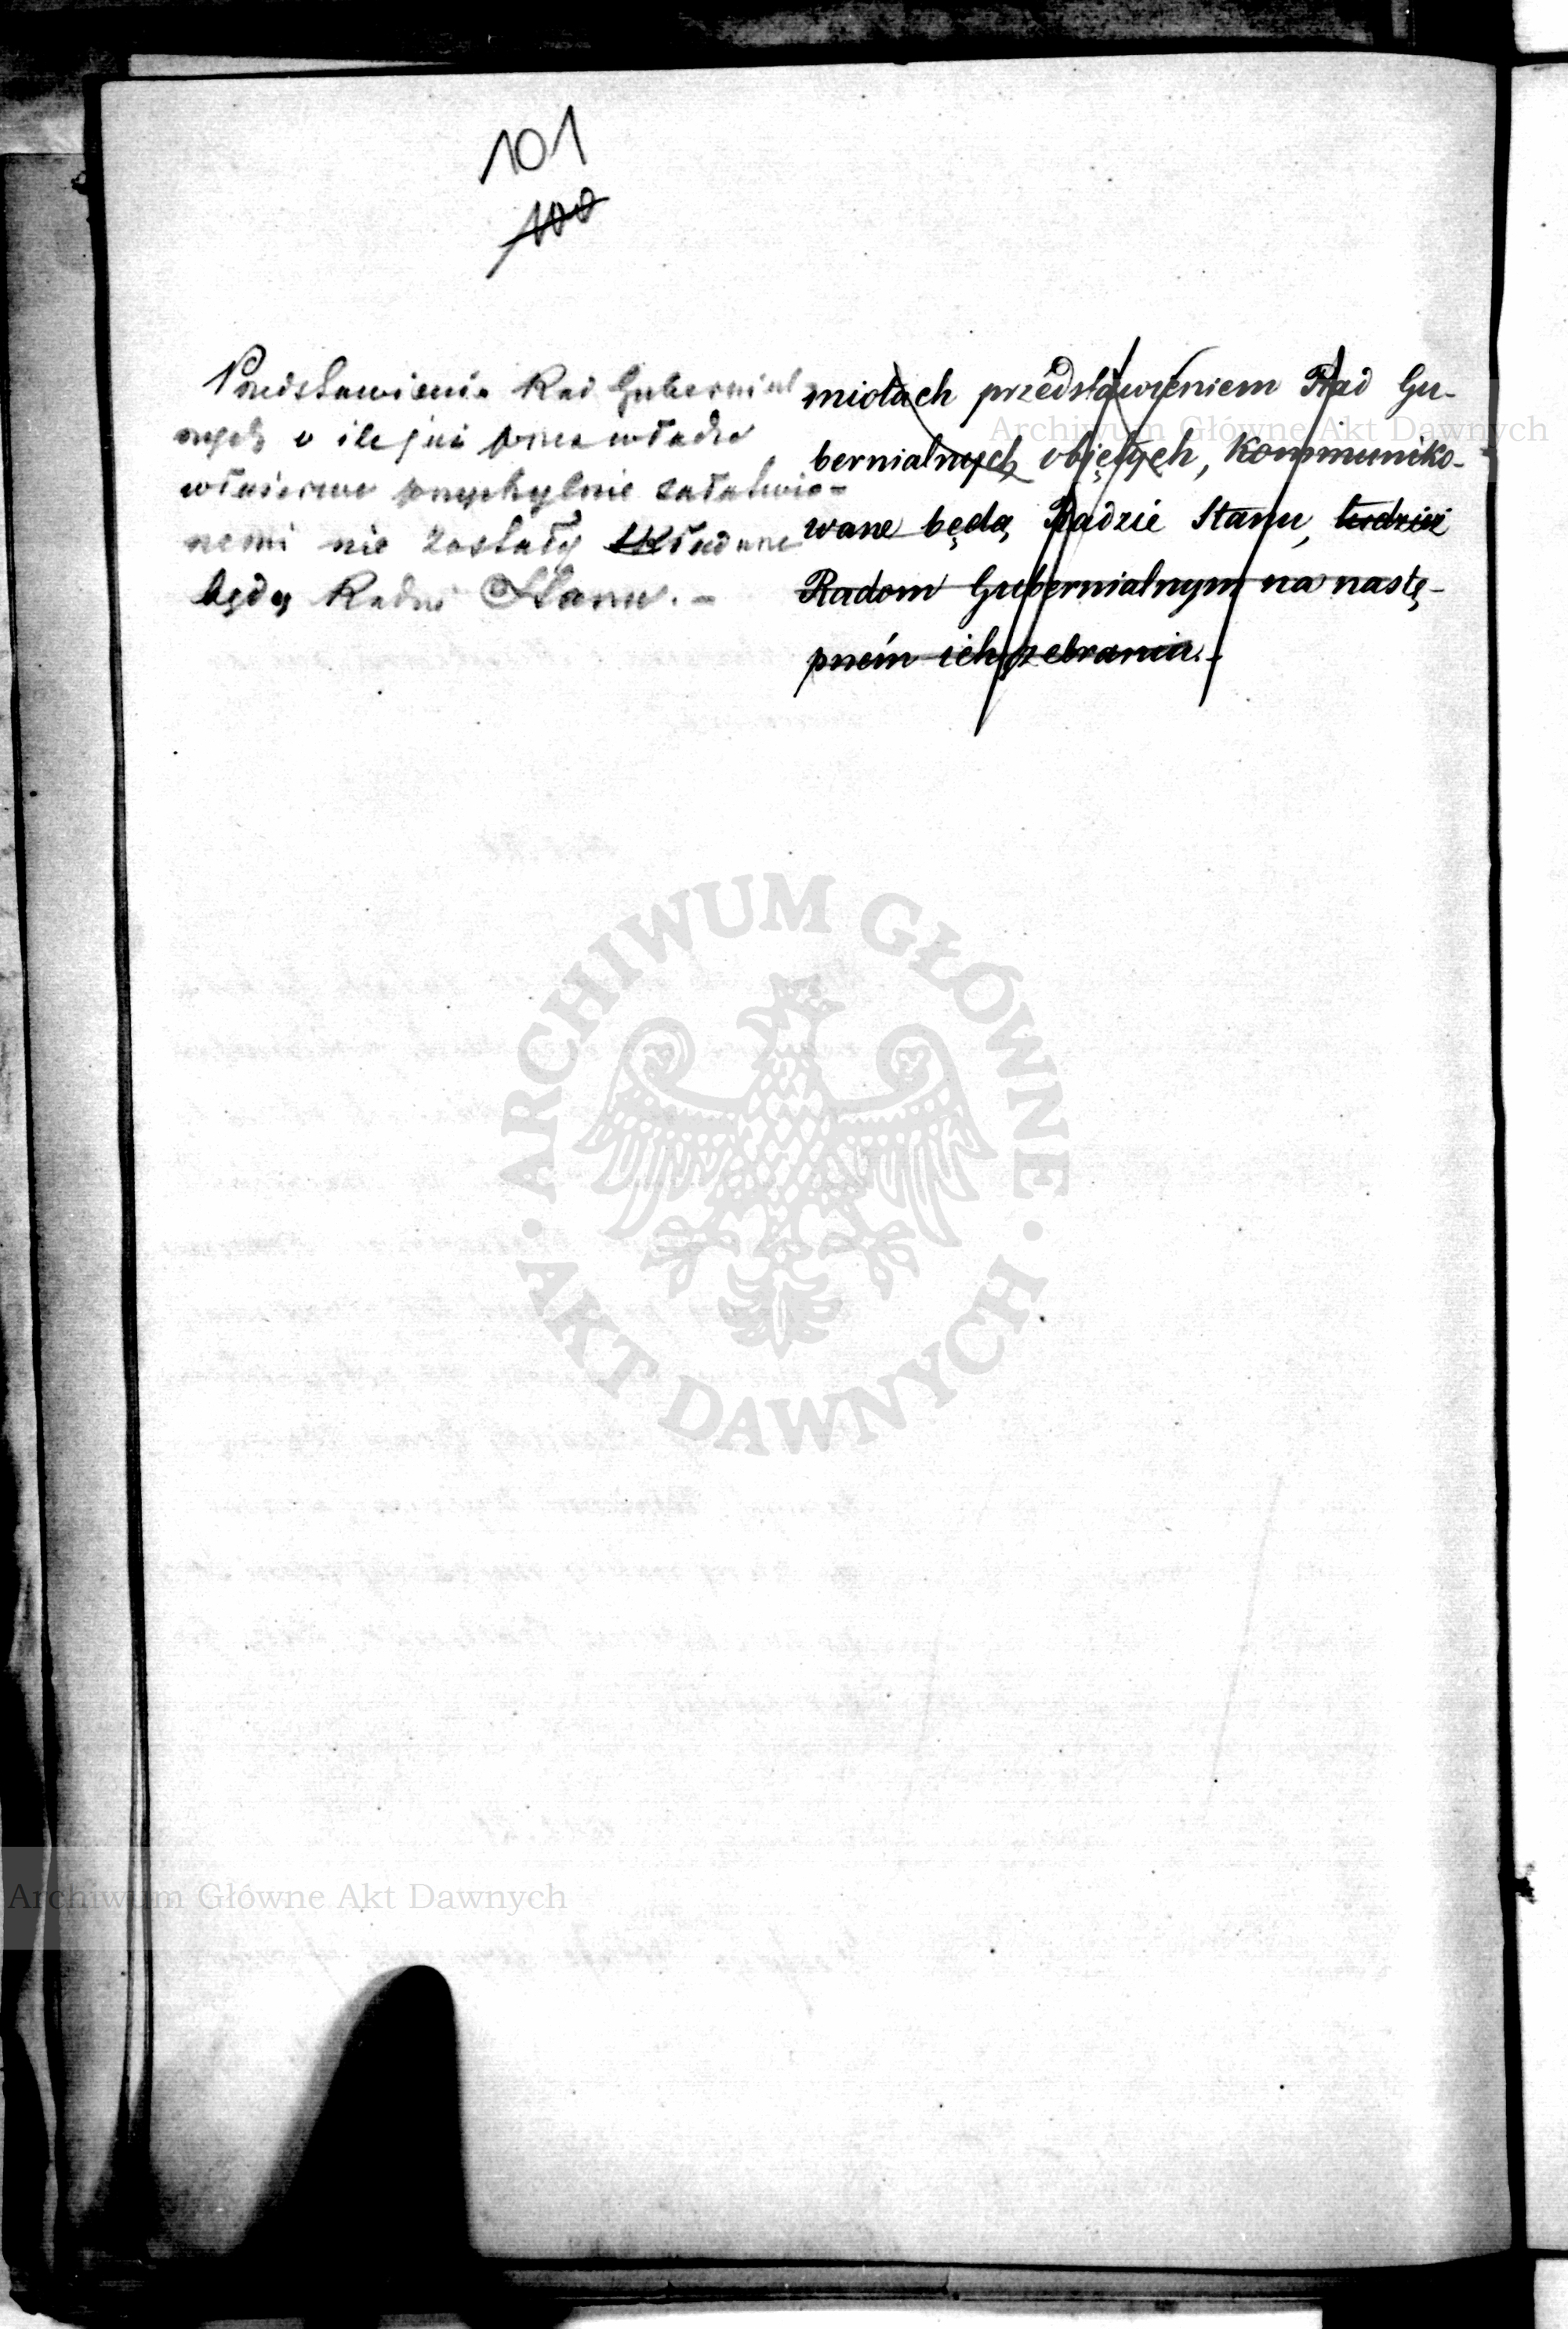 101
100
Przedstawienia Rad Gubernial-
nych o ile już przez władze
właściwe przychylnie załatwio-
nemi nie zostały składane
będą Radzie Stanu. -
miotach przedstawieniem Rad Gu-
bernialnych objętych, kommuniko-
wane będą Radzie Stanu, tudzież
Radom Gubernialnym na nastę-
pném ich zebraniu. -
Archiwum Główne Akt Dawnych
ARCHIWUM GŁÓWNE
· AKT DAWNYCH ·
Archiwum Główne Akt Dawnych